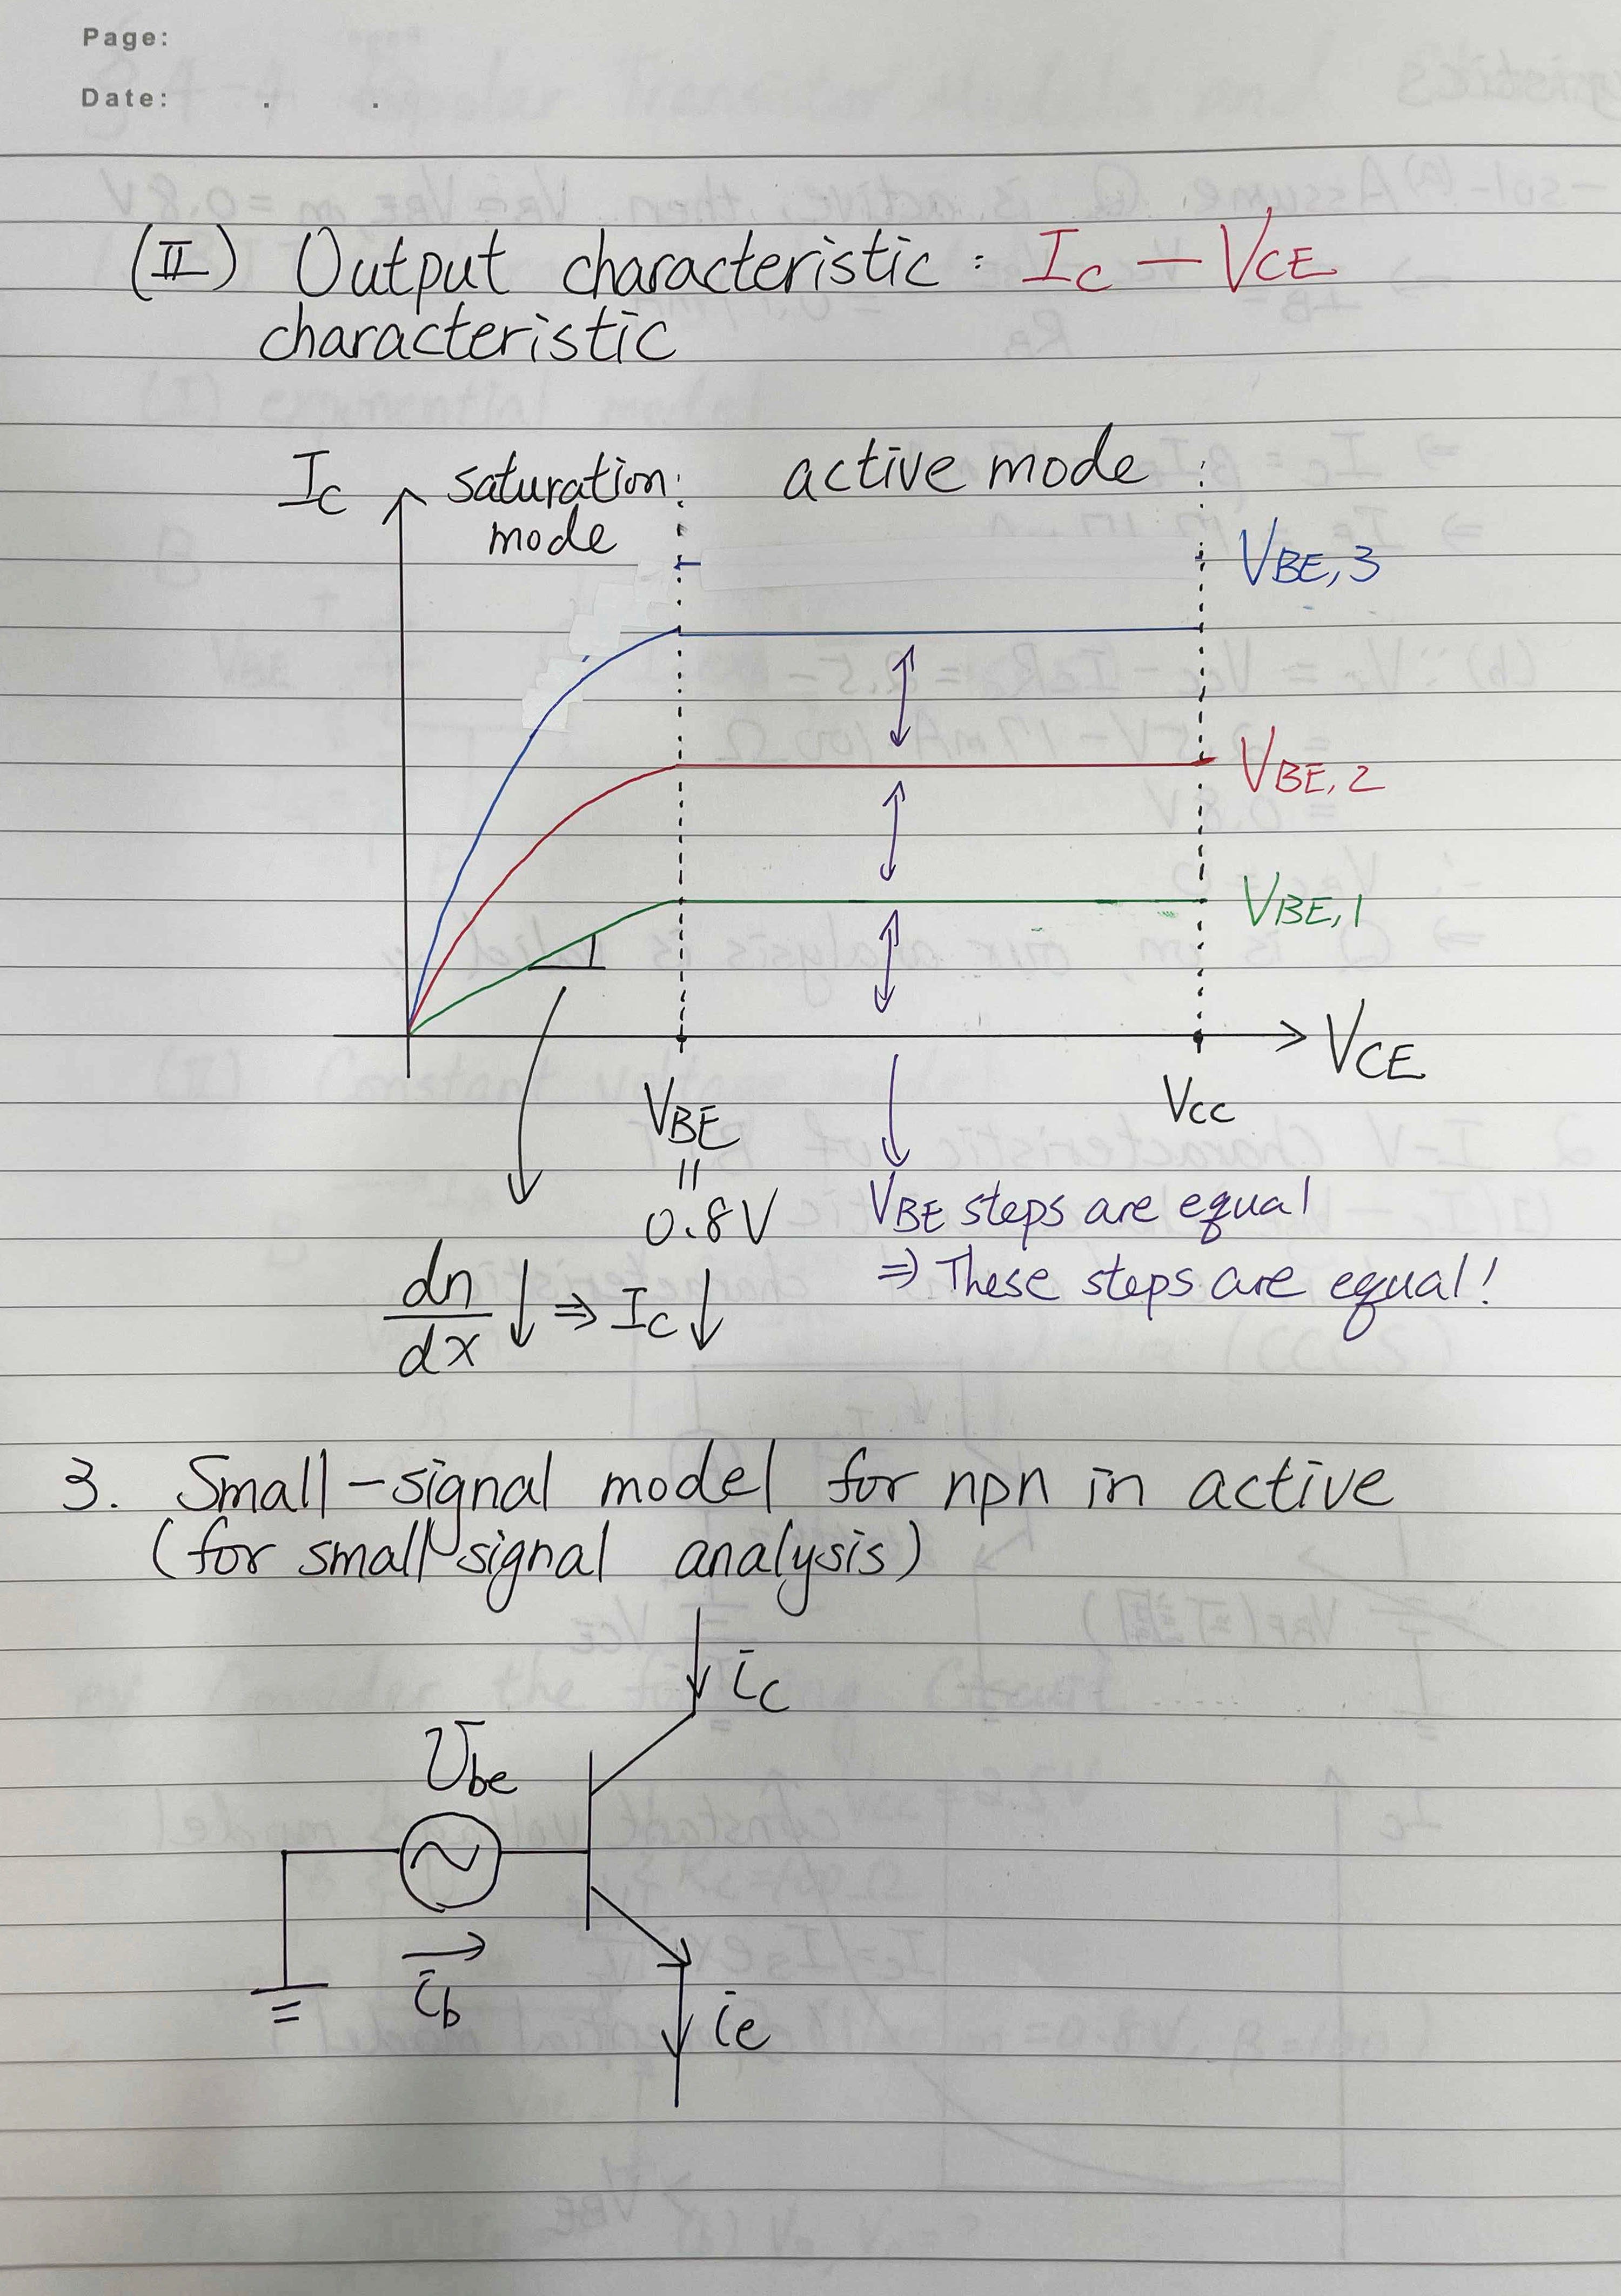 Page:
Date: . .
(II) Output characteristic : Ic — VCE
characteristic
Ic
saturation
mode
active mode
VBE,3
VBE,2
VBE,1
VCE
VBE
=
0.8V
Vcc
VBE steps are equal
⇒ These steps are equal!
dn/dx ↓ ⇒ Ic ↓
3. Small-signal model for npn in active
(for small signal analysis)
ic
Vbe
ib
ie